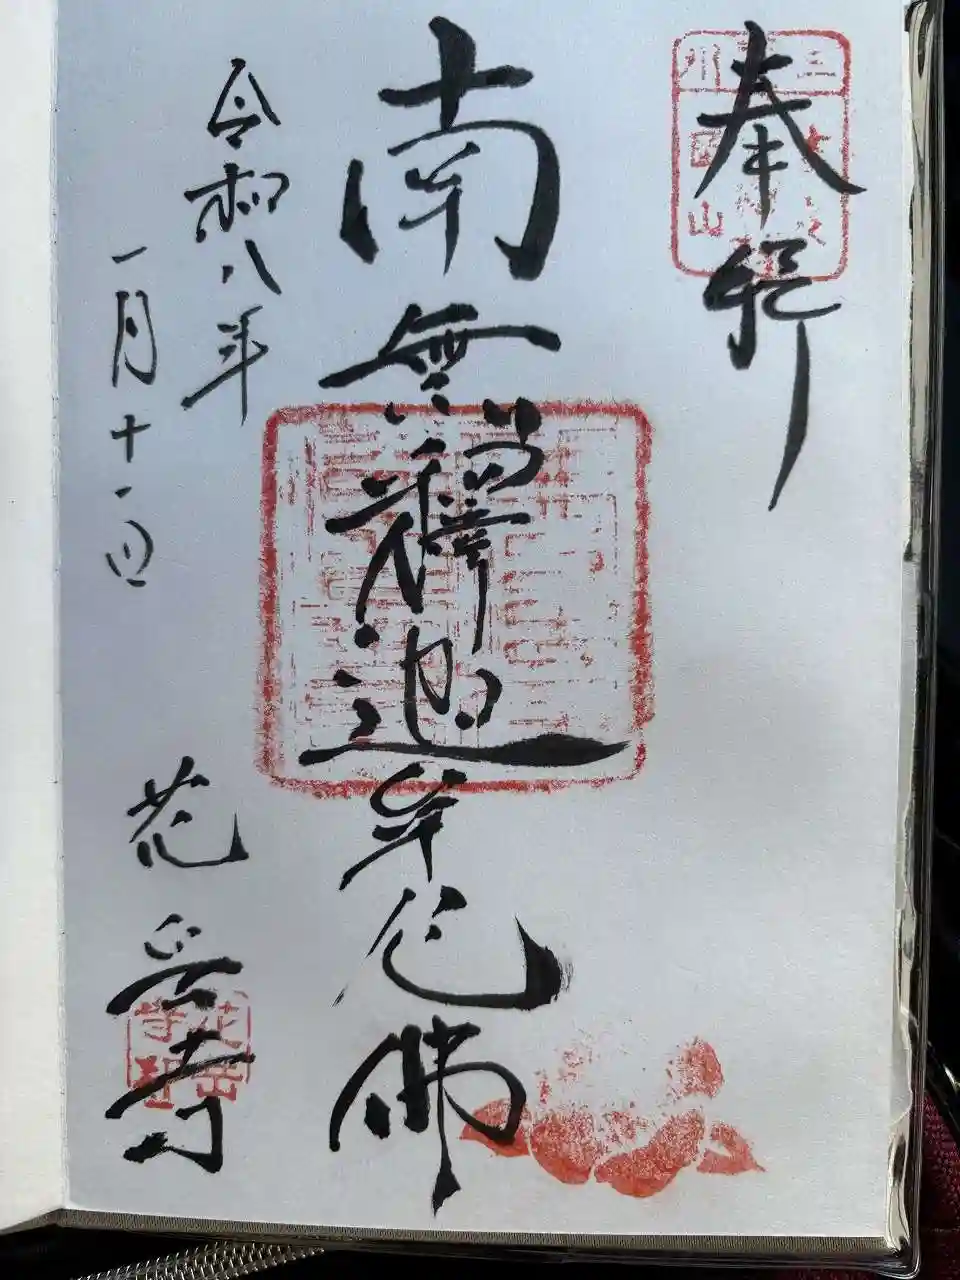 奉拝
南無釋迦牟尼佛
令和八年
一月十一日
花岳寺
花岳寺印